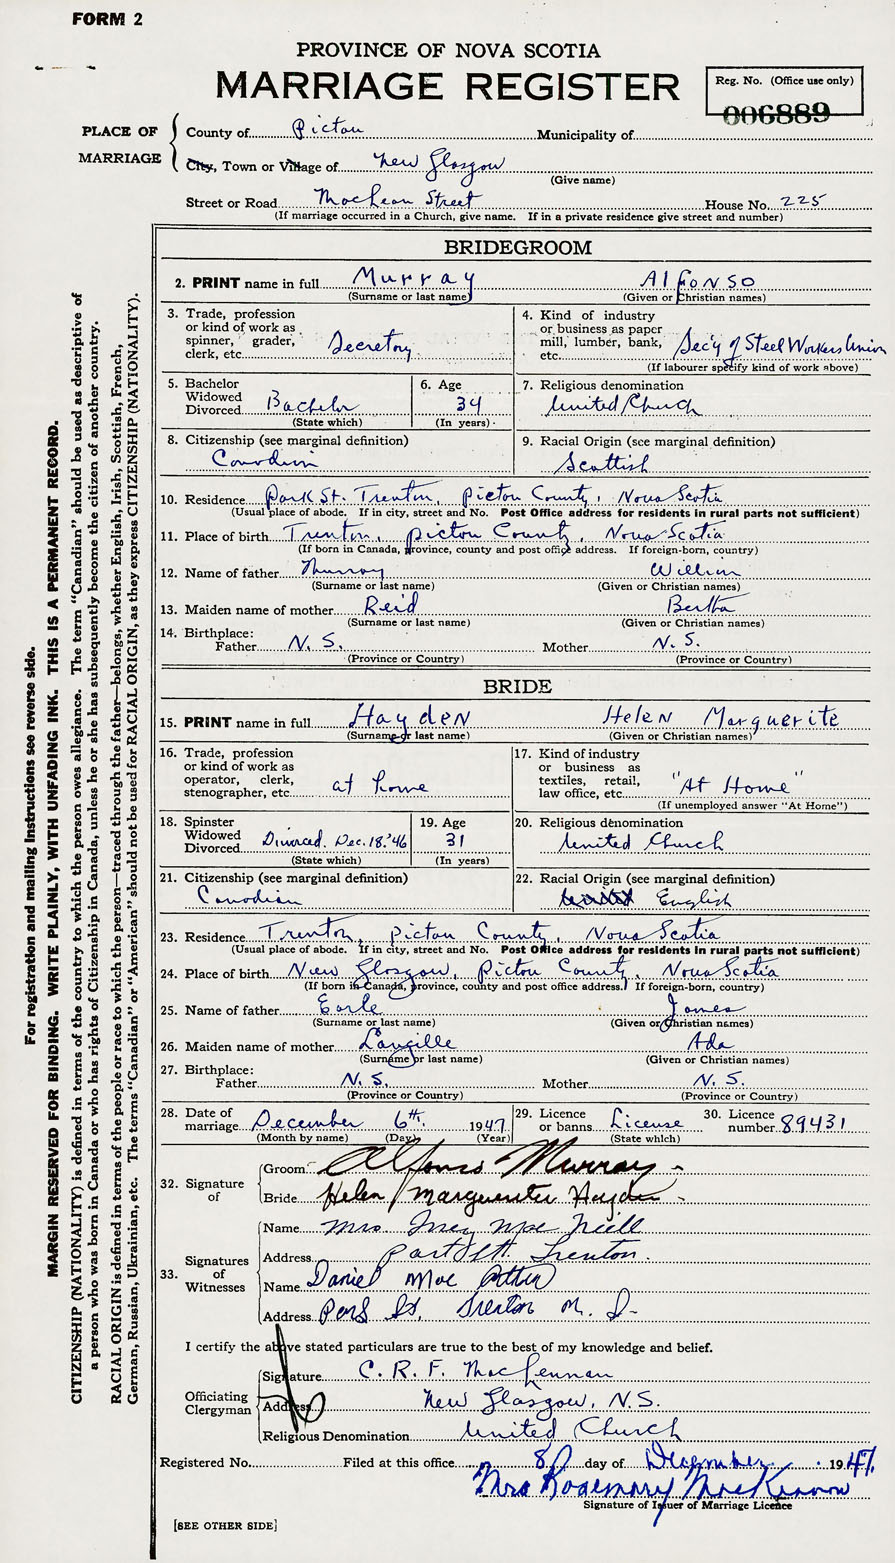 FORM 2
PROVINCE OF NOVA SCOTIA
MARRIAGE REGISTER
Reg. No. (Office use only)
006889
PLACE OF MARRIAGE
County of Pictou Municipality of
City, Town or Village of New Glasgow
(Give name)
Street or Road MacLean Street House No. 225
(If marriage occurred in a Church, give name. If in a private residence give street and number)
BRIDEGROOM
2. PRINT name in full Murray Alfonso
(Surname or last name) (Given or Christian names)
3. Trade, profession or kind of work as spinner, grader, clerk, etc. Secretary
4. Kind of industry or business as paper mill, lumber, bank, etc. Sec'y of Steel Workers Union
(If labourer specify kind of work above)
5. Bachelor Widowed Divorced Bachelor
(State which)
6. Age 34
(In years)
7. Religious denomination United Church
8. Citizenship (see marginal definition) Canadian
9. Racial Origin (see marginal definition) Scottish
10. Residence Park St. Trenton, Pictou County, Nova Scotia
(Usual place of abode. If in city, street and No. Post Office address for residents in rural parts not sufficient)
11. Place of birth Trenton, Pictou County, Nova Scotia
(If born in Canada, province, county and post office address. If foreign-born, country)
12. Name of father Murray William
(Surname or last name) (Given or Christian names)
13. Maiden name of mother Reid Bertha
(Surname or last name) (Given or Christian names)
14. Birthplace:
Father N. S. Mother N. S.
(Province or Country) (Province or Country)
BRIDE
15. PRINT name in full Hayden Helen Marguerite
(Surname or last name) (Given or Christian names)
16. Trade, profession or kind of work as operator, clerk, stenographer, etc. at home
17. Kind of industry or business as textiles, retail, law office, etc. "At Home"
(If unemployed answer "At Home")
18. Spinster Widowed Divorced Divorced. Dec. 18.'46
(State which)
19. Age 31
(In years)
20. Religious denomination United Church
21. Citizenship (see marginal definition) Canadian
22. Racial Origin (see marginal definition) English
23. Residence Trenton, Pictou County, Nova Scotia
(Usual place of abode. If in city, street and No. Post Office address for residents in rural parts not sufficient)
24. Place of birth New Glasgow, Pictou County, Nova Scotia
(If born in Canada, province, county and post office address. If foreign-born, country)
25. Name of father Earle James
(Surname or last name) (Given or Christian names)
26. Maiden name of mother Langille Ada
(Surname or last name) (Given or Christian names)
27. Birthplace:
Father N. S. Mother N. S.
(Province or Country) (Province or Country)
28. Date of marriage December 6th. 1947
(Month by name) (Day) (Year)
29. Licence or banns License
(State which)
30. Licence number 89431
32. Signature of
Groom Alfonso Murray
Bride Helen Marguerite Hayden
33. Signatures of Witnesses
Name Mrs. Inez Mae
Address Park St. Trenton.
Name Daniel Mac
Address Park St. Trenton N. S.
I certify the above stated particulars are true to the best of my knowledge and belief.
Officiating Clergyman
Signature C. R. F. MacLennan
Address New Glasgow, N.S.
Religious Denomination United Church
Registered No. Filed at this office 8 day of December 1947.
Mrs Rosemary MacKinnon
Signature of Issuer of Marriage Licence
[SEE OTHER SIDE]
For registration and mailing instructions see reverse side.
MARGIN RESERVED FOR BINDING. WRITE PLAINLY, WITH UNFADING INK. THIS IS A PERMANENT RECORD.
CITIZENSHIP (NATIONALITY) is defined in terms of the country to which the person owes allegiance. The term "Canadian" should be used as descriptive of
a person who was born in Canada or who has rights of Citizenship in Canada, unless he or she has subsequently become the citizen of another country.
RACIAL ORIGIN is defined in terms of the people or race to which the person—traced through the father—belongs, whether English, Irish, Scottish, French,
German, Russian, Ukrainian, etc. The terms "Canadian" or "American" should not be used for RACIAL ORIGIN, as they express CITIZENSHIP (NATIONALITY).